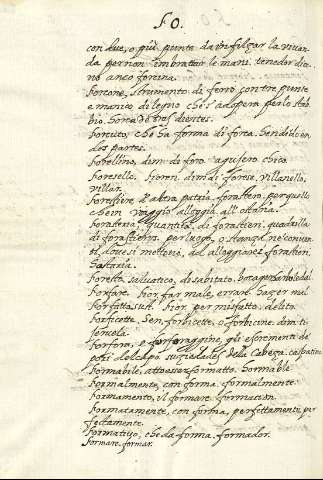 FO.
con due, o più punte da infilzar la vivan
da per non imbrattar le mani. tenedor dico
no anco forcina.
Forcone, strumento di ferro con tre punte
e manico di legno che s'adopera per lo stab
bio. horca de tres dientes.
Forcuto, che ha forma di forca. hendido en
dos partes.
Forellino, dim. di foro. agujero chico
Foresello. Fioren. dim. di forese, villanello,
villan.
Forestiere d'altra patria, forastero, per quello
che in viaggio alloggia all'ostaria.
Foresteria, quantità di forestieri, quadrilla
di forastieros. per luogo, o stanza ne' conven
ti, dove si mettono, ad alloggiare i forastieri.
hostaria.
Foretto, salvatico, disabitato.
Forfare. Fior. far male, errare. hazer mal
Forfattura. Fior. per misfatto. delito
Forficette. Sen. forbicette, o forbicine. dim.
Forfora, e forforaggine, gli escrementi de
posi del capo. suziedades della cabeça. caspa
Formabile, atto esser formatto. formable
Formalmente, con forma. formalmente.
Formamento, il formare. formacion
Formatamente, con forma, perfettamente, per
fectamente.
Formativo, che da forma. formador.
Formare. formar.